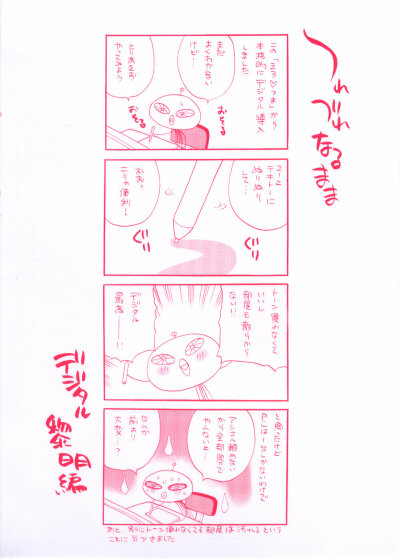 つれづれなるまま
この「ミス♡つま」から
本格的にデジタル導入
しました
まだ
よくわかない
けど…
とりあえず
やってみよう
おそる
おそる
えーと
テキトーに
ぬりぬり
して…
おおっ
こりゃ便利…!
ぐり
ぐり
トーン買わなくて
いいし
部屋も散らから
ない!!
デジタル
最高——!!
と思ったけど
PCは一台しかないわけで
アシさん頼めない
から全部自分で
やんないと…
なんか
前より
大変…?
あと 別にトーン使わなくても部屋は汚れるという
ことに気づきました
デジタル
黎明編